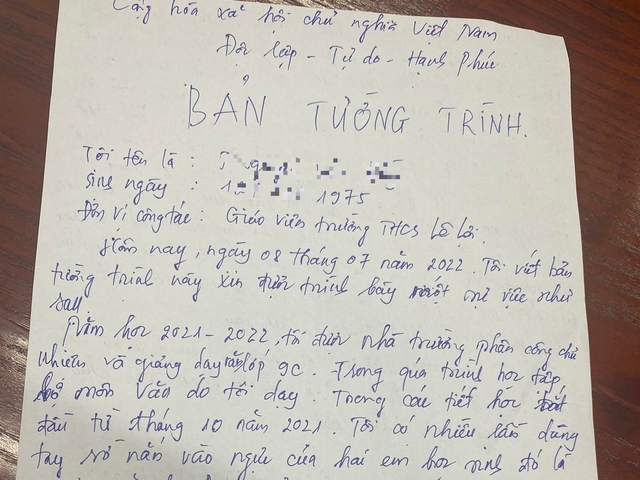 Cộng hòa xã hội chủ nghĩa Việt Nam
Độc lập - Tự do - Hạnh Phúc
BẢN TƯỜNG TRÌNH.
Tôi tên là :
sinh ngày : 1 1975
Đơn vị công tác : Giáo viên trường THCS Lê Lợi.
Hôm nay, ngày 08 tháng 07 năm 2022. Tôi viết bản
tường trình này xin được trình bày một sự việc như
sau
Năm học 2021-2022, tôi được nhà trường phân công chủ
nhiệm và giảng dạy văn lớp 9C. Trong quá trình học tập
bộ môn Văn do tôi dạy. Trong các tiết học bắt
đầu từ tháng 10 năm 2021. Tôi có nhiều lần dùng
tay sờ nắn vào ngực của hai em học sinh đó là